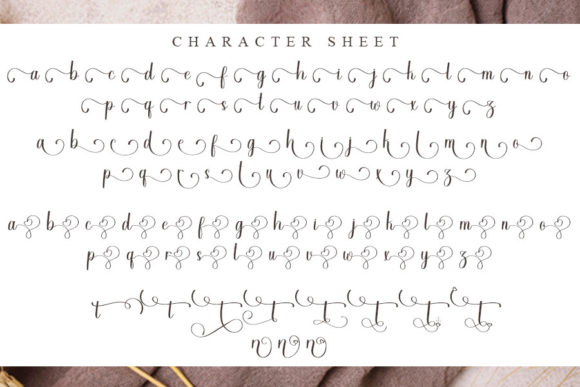 CHARACTER SHEET
a b c d e f g h i j k l m n o
p q r s t u v w x y z
a b c d e f g h i j k l m n o
p q r s t u v w x y z
a b c d e f g h i j k l m n o
p q r s t u v w x y z
t t t t t t t t
n n n